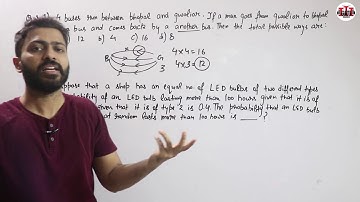 4 buses run between bhopal and gwalior. If a man goes from gwalior to bhopal
bus and comes back by another bus. Then the total possible ways are:
12 b) 4 c) 16 d) 8
B G
4 x 4 = 16
4 x 3 = 12
3
suppose that a shop has an equal no. of LED bulbs of two different types
bility of an LED bulb lasting more than 100 hours given that it is of
given that it is of type 2 is 0.4. The probability that an LED bulb
at random lasts more than 100 hours is ?